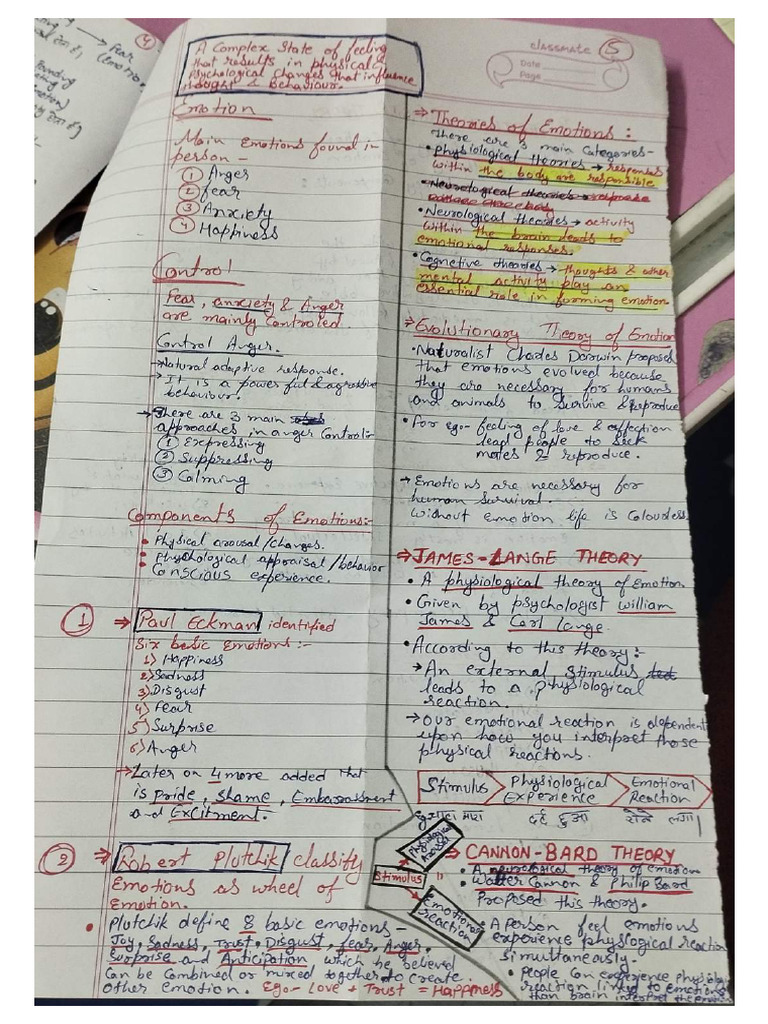 ④
→ fear
classmate
Date
Page
⑤
A Complex State of feeling
that results in physical &
Psychological changes that influence
thought & Behaviour.
Emotion
Main Emotions found in
person -
① Anger
② fear
③ Anxiety
④ Happiness
Control
Fear, anxiety & Anger
are mainly Controled.
Control Anger.
→ Natural adaptive response.
→ It is a powerful & agressive
behaviour.
→ There are 3 main
approaches in anger Control:-
① Expressing
② Suppressing
③ Calming
Components of Emotions:-
• Physical arousal/changes.
• Phychological appraisal/behavior
• Conscious experience.
① → Paul Eckman identified
Six basic Emotions:-
1) Happiness
2) Sadness
3) Disgust
4) Fear
5) Surprise
6) Anger
→ Later on 4 more added that
is pride, shame, Embarassment
and Excitment.
② ⇒ Robert Plutchik classify
Emotions as wheel of
Emotion.
• Plutchik define 8 basic emotions -
Joy, Sadness, Trust, Disgust, fear, Anger,
Surprise and Anticipation which he believed
Can be Combined or mixed together to create
other emotion. Eg:- Love + Trust = Happiness
⇒ Theories of Emotions:
There are 3 main Categories-
• physiological theories → responses
within the body are responsible
• Neurological theories → response
• Neurological theories → activity
within the brain leads to
emotional responses.
• Cognetive theories → thoughts & other
mental activity play an
essential role in forming emotion
⇒ Evolutionary Theory of Emotion
• Naturalist Charles Darwin proposed
that emotions evolved because
they are necessary for humans
and animals to survive & reproduce
• For eg:- feeling of love & affection
lead people to seek
mates & reproduce.
→ Emotions are necessary for
human survival.
Without emotion life is Colouless.
⇒ JAMES-LANGE THEORY
• A physiological theory of Emotion
• Given by psychologist william
James & Carl Lange.
• According to this theory:-
→ An external stimulus
leads to a physiological
reaction.
→ Our emotional reaction is dependent
upon how you interpret those
physical reactions.
Stimulus > Physiological Experience > Emotional Reaction
दर्द हुआ रोने लगा
Stimulus
Physiological
Arousal
Emotional
reaction
⇒ CANNON-BARD THEORY
• A neurological theory of emotion
• Walter Cannon & Philip Bard
proposed this theory.
• A person feel emotions
experience physlogical reaction
simultaneously.
• people Can experience physiolo
reaction linked to emotions
than brain interpret the emotion